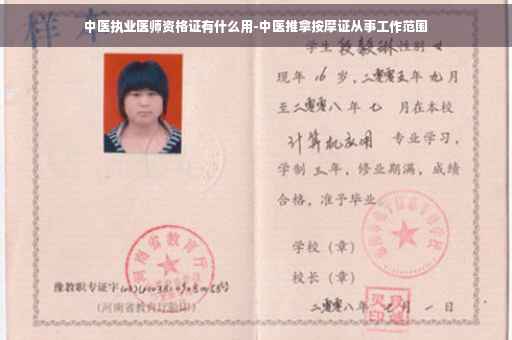 中医执业医师资格证有什么用-中医推拿按摩证从事工作范围
样本
学生段毅琳性别女
现年16岁,二零零五年九月
至二零零八年七月在本校
计算机应用 专业学习,
学制三年,修业期满,成绩
合格,准予毕业
学校(章)
校长(章)
二零零八年七月一日
河南省教育厅
豫教职专证字
(河南省教育厅验印)